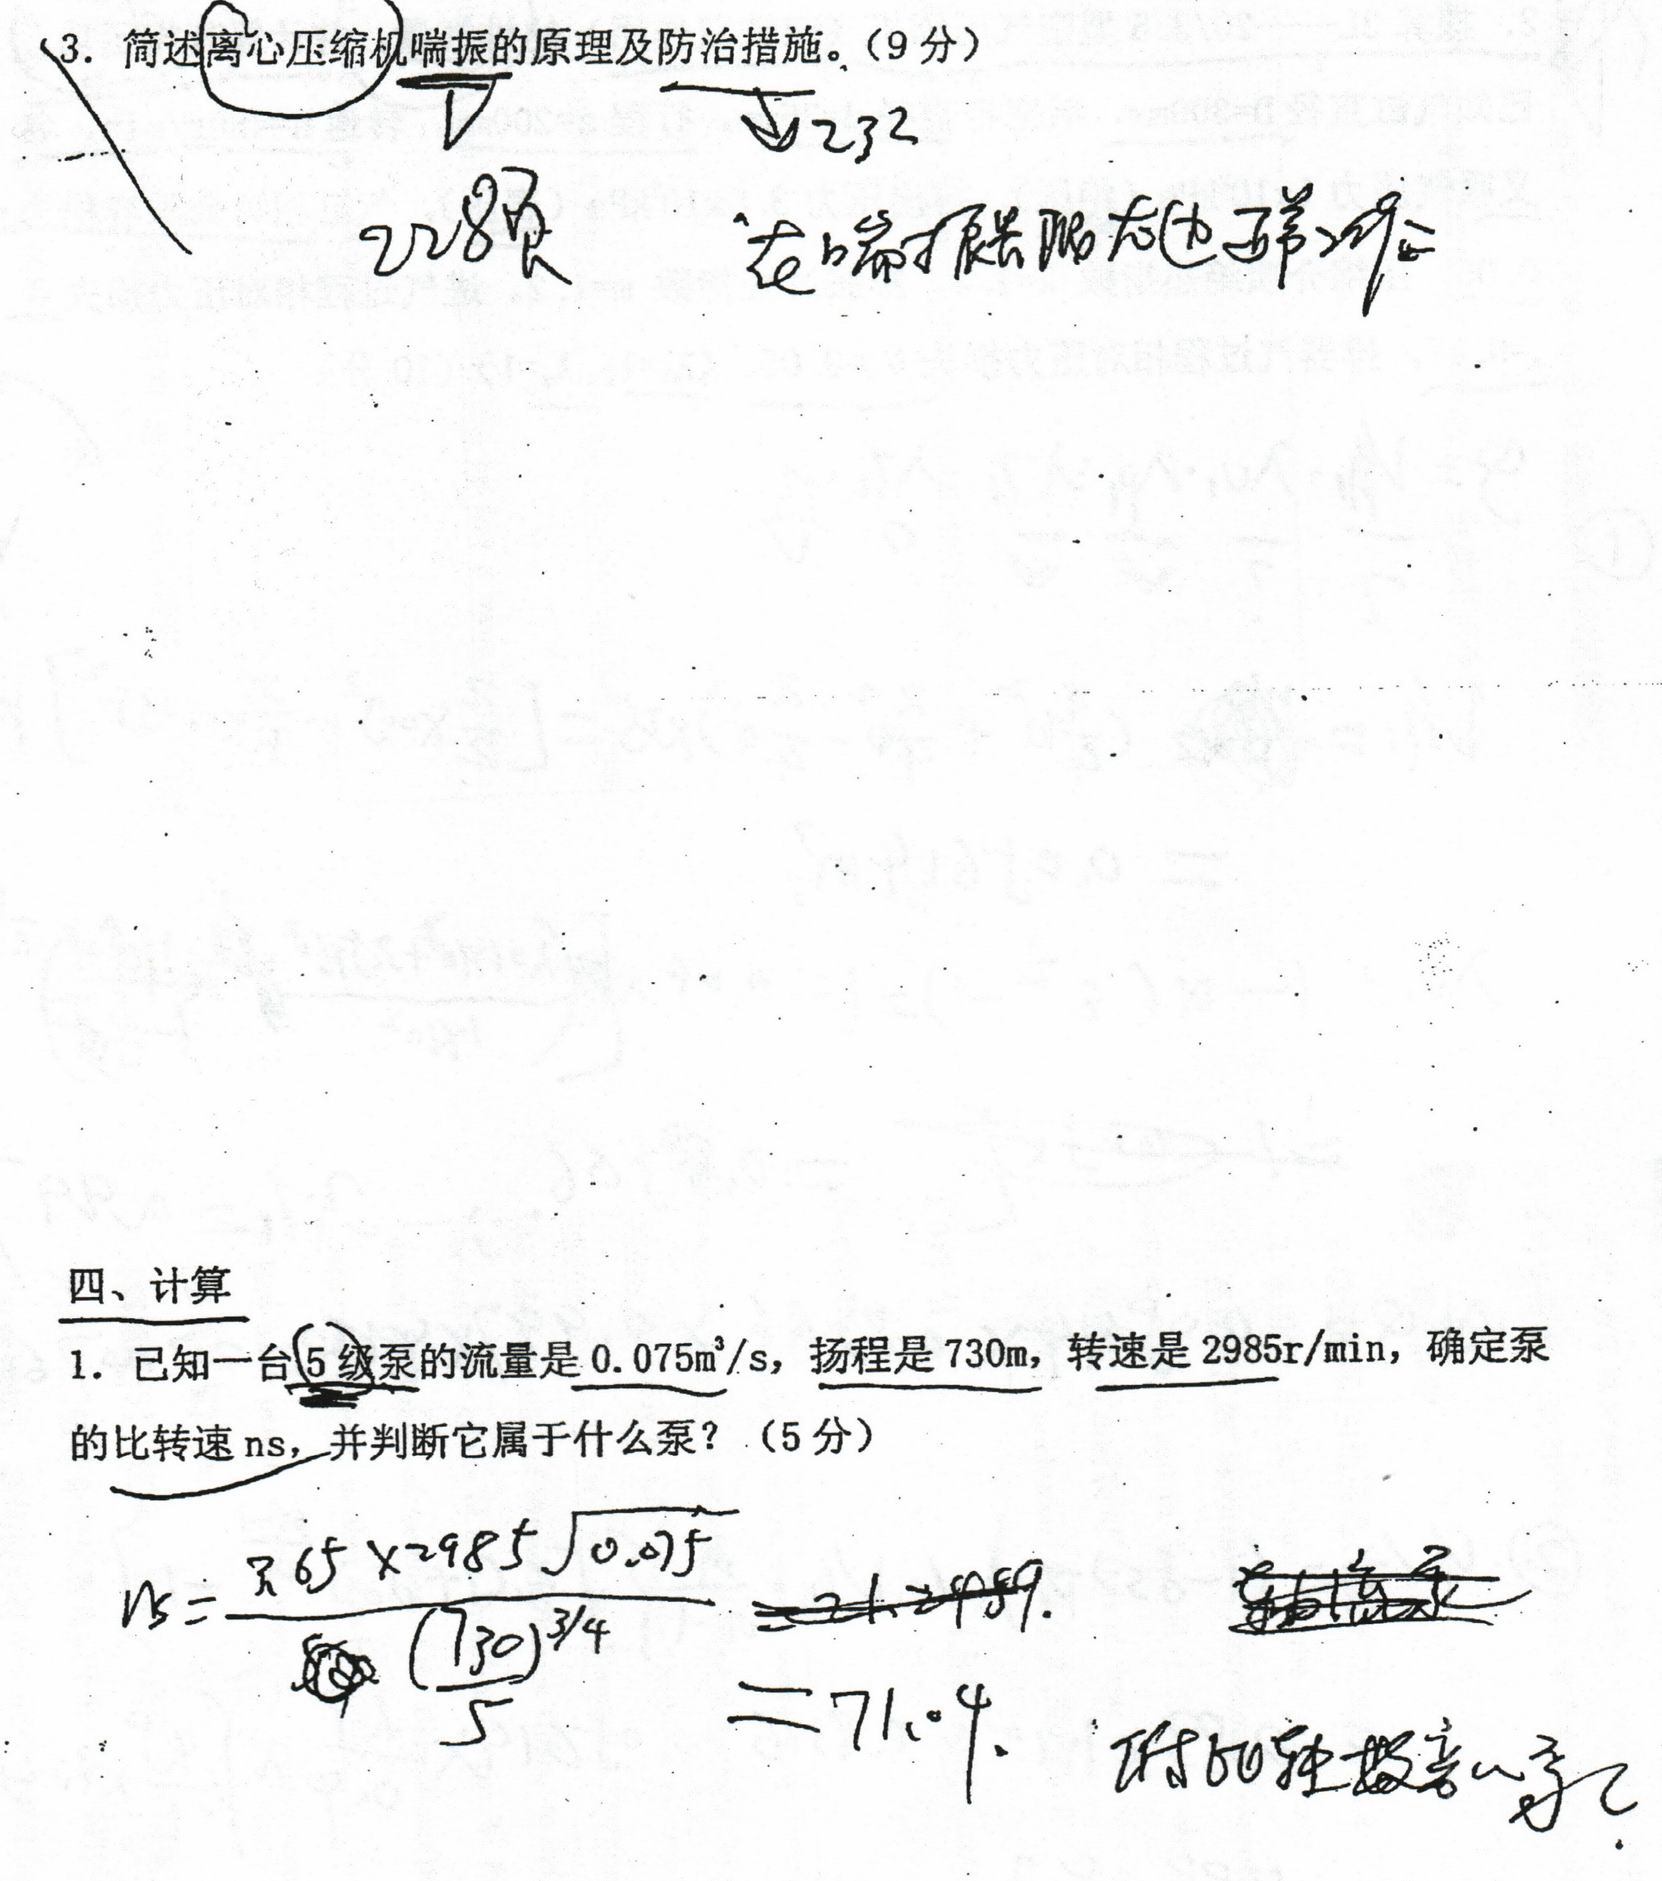 3. 简述离心压缩机喘振的原理及防治措施。（9分）
232
228页
在喘振
四、计算
1. 已知一台5级泵的流量是0.075m³/s，扬程是730m，转速是2985r/min，确定泵
的比转速ns，并判断它属于什么泵？（5分）
ns = 3.65×2985√0.075 / (730/5)^3/4
= 71.04.